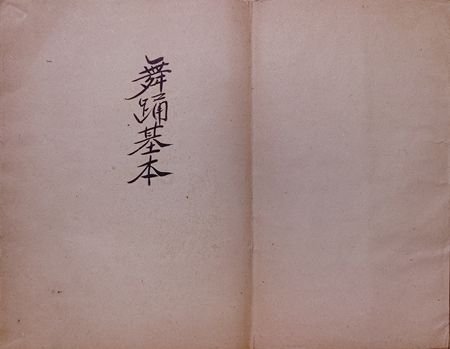 舞踊基本